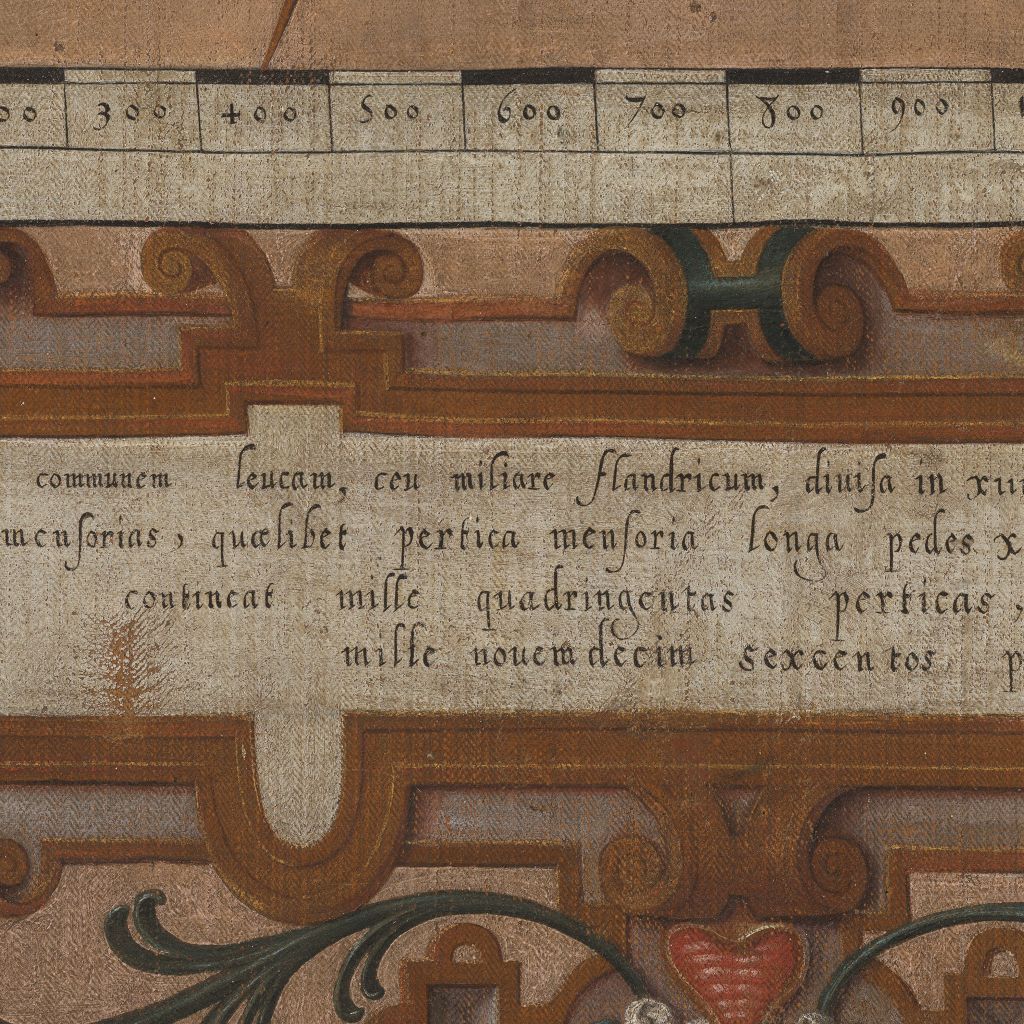 300 400 500 600 700 800 900
communem leucam, ceu miliare flandricum, diuisa in
mensorias, quælibet pertica mensoria longa pedes
contineat mille quadringentas perticas,
mille nouem decim sexcentos